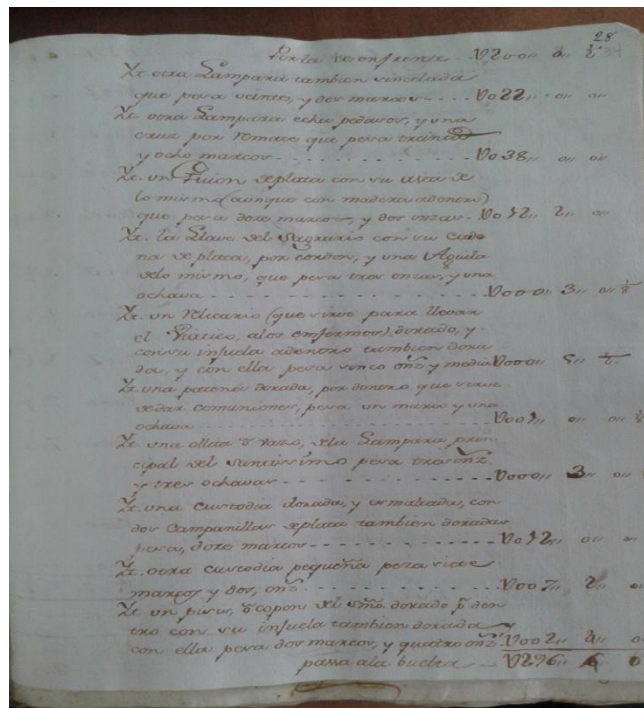 28
Por la de enfrente - - U200,, 0,, ½
Yt. otra Lampara tambien sincelada
que pesa veinte, y dos marcos - - - - U022,, 0,, 00
Yt. otra Lampara echa pedasos, y una
cruz por remate que pesa treinta
y ocho marcos - - - - - - - - - - U038,, 0,, 00
Yt. un Guion de plata con su asta de
lo mismo (aunque con madera adentro)
que pesa doze marcos, y dos onzas - U012,, 2,, 0
Yt. la Llave del Sagrario con su cade
na de plata, por cordon, y una Aguila
delo mismo, que pesa tres onzas, y una
ochava - - - - - - - - - - U000,, 3,, 0,, ⅛
Yt. un Relicario (que sirve para llevar
el Viatico, alos enfermos) dorado, y
con su adentro tambien dora
da, y con ella pesa sinco onz.s y media U000,, 5,, ½
Yt. una patena dorada, por dentro que sirve
de dar comuniones, pesa un marco y una
ochava - - - - - - - - - - U001,, 0,, 0,, ⅛
Yt. una ollita ó vazo, dela Lampara prin
cipal del Santissimo pesa tres onz.s
y tres ochavas - - - - - - - - U000,, 3,, 0,,
Yt. una custodia dorada, y esmaltada, con
dos Campanillas de plata tambien doradas
pesa, doze marcos - - - - - - - U012,, 0,, 0
Yt. otra custodia pequeña pesa siete
marcos y dos, onz.s - - - - - - - U007,, 2,, 0
Yt. un ó copon del dorado p.r den
tro con su tambien dorada y
con ella pesa dos marcos, y quatro onz.s U002,, 4,, 0
passa ala buelta - - U296,, 6,, 0